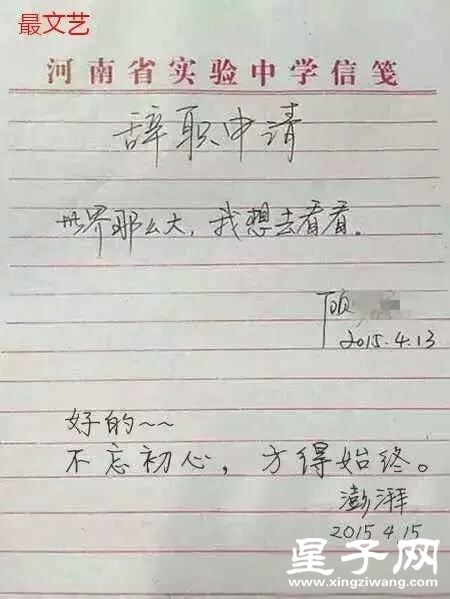 最文艺
河南省实验中学信笺
辞职申请
世界那么大，我想去看看。
顾
2015.4.13
好的~~
不忘初心，方得始终。
澎湃
2015 4 15
星子网
www.xingziwang.com